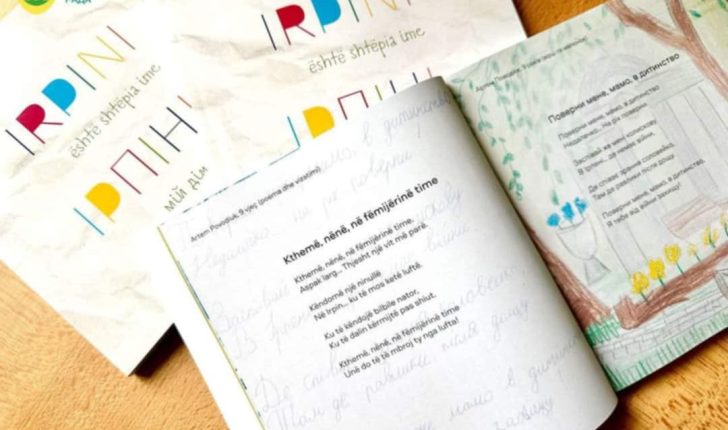 РАДА
IRPINI
është shtëpia ime
ІРПІНЬ
мій дім
IRPINI
është shtëpia ime
ІРПІНЬ
Artem Povodiuk, 9 vjeç (poema dhe vizatimi)
Kthemë, nënë, në fëmijërinë time
Kthemë, nënë, në fëmijërinë time,
Aspak larg... Thjesht një vit më parë.
Këndomë një ninullë
Në Irpin... ku të mos ketë luftë.
Ku të këndojë bilbile nator,
Ku të dalin kërmijtë pas shiut.
Kthemë, nënë, në fëmijërinë time
Unë do të të mbroj ty nga lufta!
Поверни мене, мамо, в дитинство
Поверни мене, мамо, в дитинство
Недалечко... На рік поверни.
Заспівай же мені колискову
В Ірпені... де немає війни.
Де співає зрання соловейко,
Там де равлики після дощу.
Поверни мене, мамо, в дитинство,
Я тебе від війни захищу!